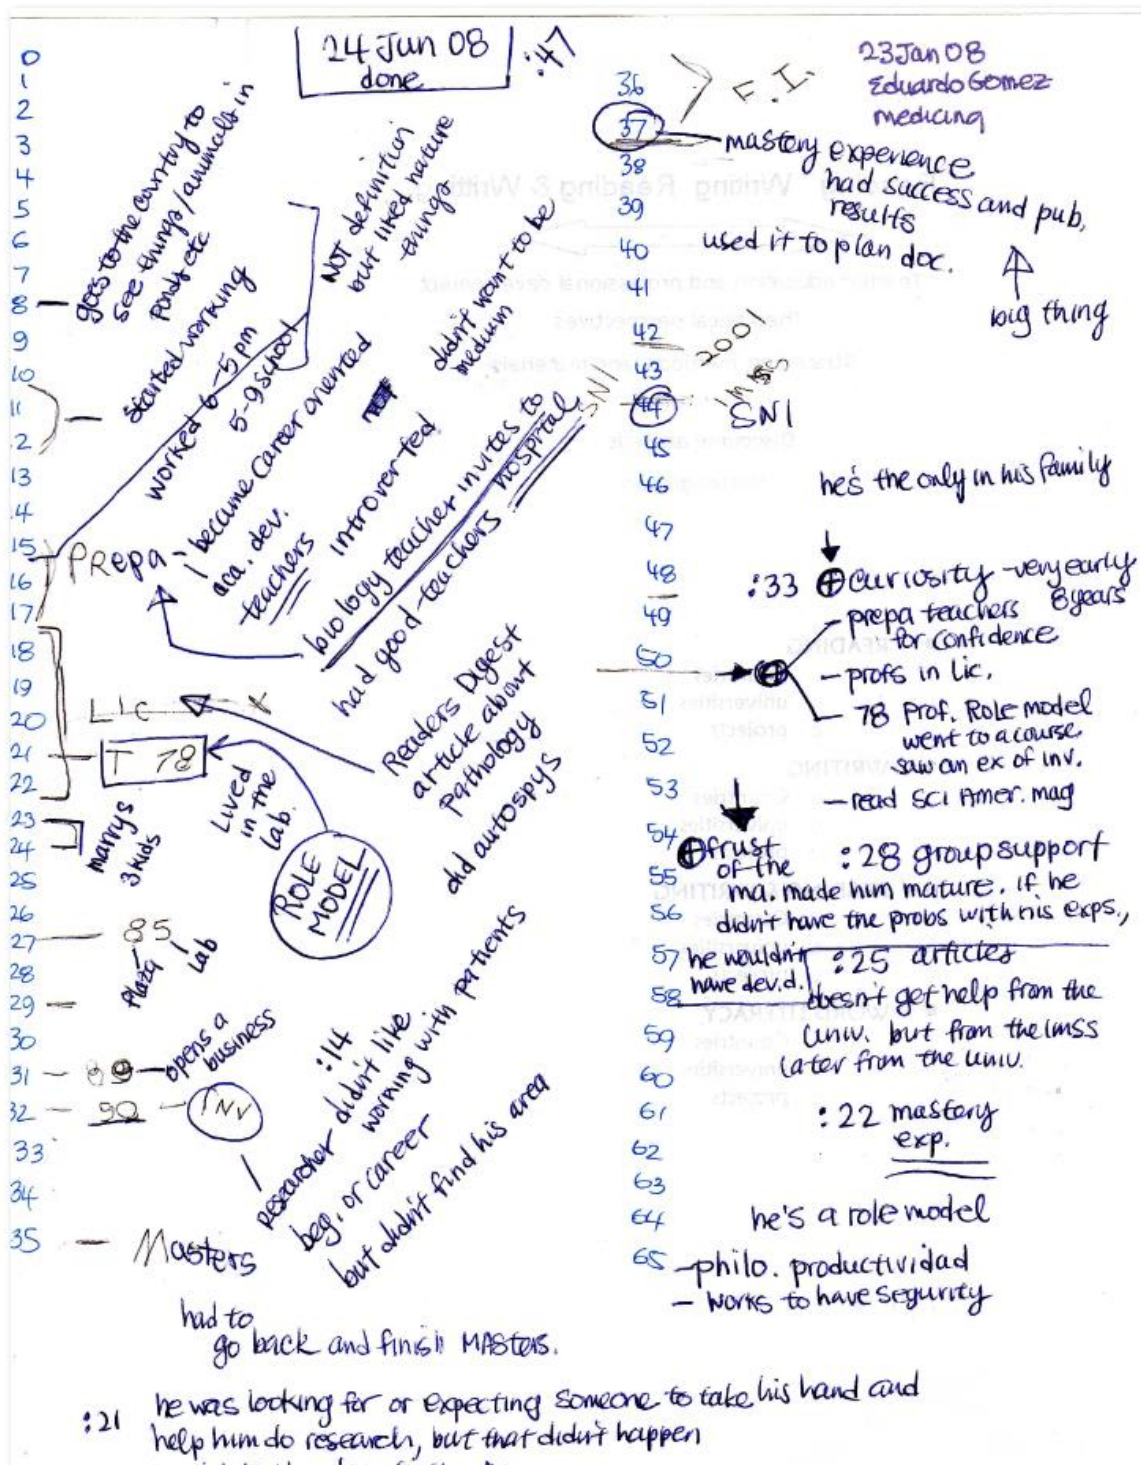 24 Jun 08
done
:47
23 Jan 08
Eduardo Gomez
medicina
0
1
2
3
4
5
6
7
8
9
10
11
12
13
14
15
16
17
18
19
20
21
22
23
24
25
26
27
28
29
30
31
32
33
34
35
goes to the country to
see things/animals in
ponds etc
started working
worked 6-5 pm
5-9 school
NOT definition
but liked nature
things
PRepa - became career oriented
aca. dev.
teachers
introverted
didn't want to be
medium
biology teacher invites to
hospital
SNI
had good teachers
Lic
T 78
Lived
in the
Lab.
Readers Digest
article about
Pathology
did autospys
marrys
3 kids
ROLE
MODEL
85
Plaza
Lab
89 - opens a
business
90 - INV
:14
researcher didn't like
working with patients
beg. or career
but didn't find his area
Masters
had to
go back and finish MAsters.
:21 he was looking for or expecting someone to take his hand and
help him do research, but that didn't happen
36
37
38
39
40
41
42
43
44
45
46
47
48
49
50
51
52
53
54
55
56
57
58
59
60
61
62
63
64
65
F.I.
mastery experience
had success and pub.
results
used it to plan doc.
big thing
2001
IMSS
SNI
he's the only in his family
:33 curiosity - very early
8 years
- prepa teachers
for confidence
- profs in Lic.
- 78 Prof. Role model
went to a course
saw an ex of inv.
- read Sci Amer. mag
frust
of the
ma. made him mature. if he
didn't have the probs with his exps.,
he wouldn't
have dev.d.
:28 group support
:25 articles
doesn't get help from the
univ. but from the IMSS
later from the univ.
:22 mastery
exp.
he's a role model
- philo. productividad
- works to have segurity